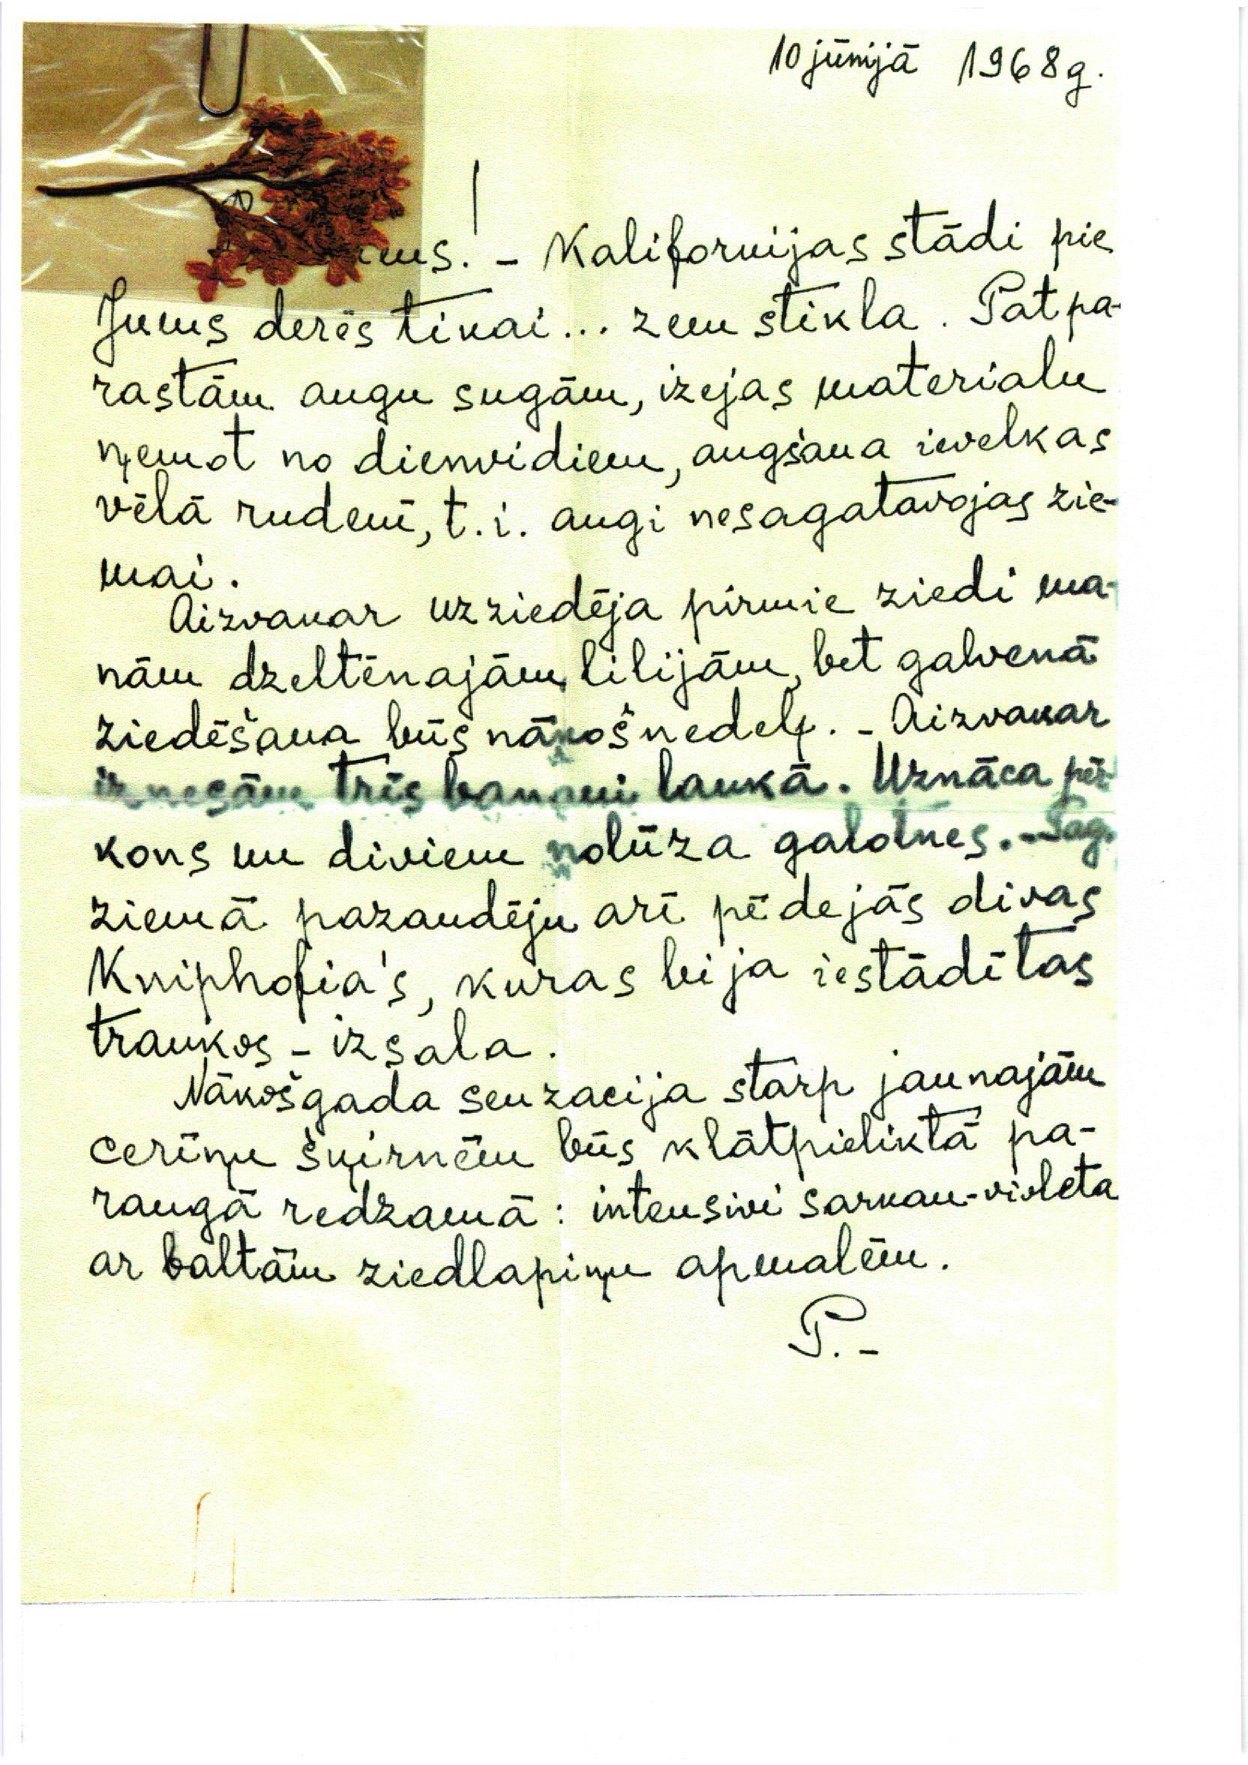 10 jūnijā 1968 g.
! – Kalifornijas stādi pie
Jums derēs tikai... zem stikla. Pat pa-
rastām augu sugām, izejas materialu
ņemot no dienvidiem, augšana ievelkas
vēlā rudenī, t. i. augi nesagatavojas zie-
mai.
Aizvakar uzziedēja pirmie ziedi ma-
nām dzeltēnajām lilijām, bet galvenā
ziedēšana būs nākoš nedeļ. – Aizvakar
iznesām trīs banani laukā. Uznāca pēr-
kons un diviem nolūza galotnes. – Pag.
ziemā pazaudēju arī pēdejās divas
Kniphofia's, kuras bija iestādītas
traukos – izsala.
Nākošgada senzacija starp jaunajām
ceriņu šķirnēm būs klātpieliktā pa-
raugā redzamā: intensivi sarkan-violeta
ar baltām ziedlapiņu apmalēm.
P. –